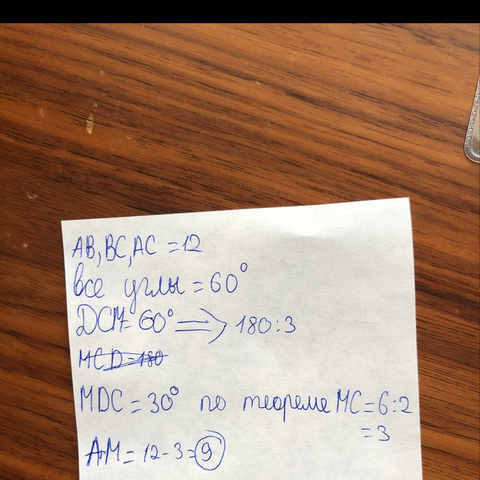 AB, BC, AC = 12
все углы = 60°
DCM = 60° ⟹ 180:3
MCD = 180
MDC = 30° по теореме MC = 6:2
= 3
AM = 12-3=9